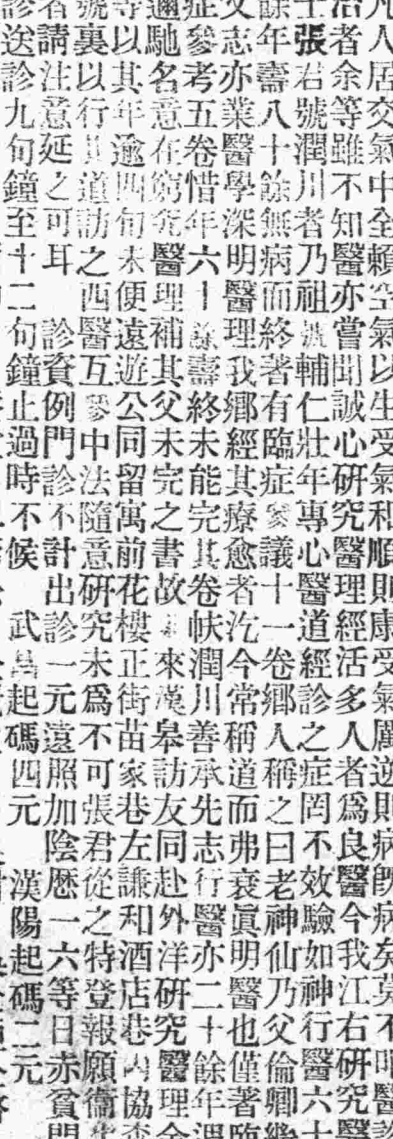 凡人居交氣中全賴空氣以生受氣和順則康受氣厲逆則病既病矣莫不
治者余等雖不知醫亦嘗聞誠心研究醫理經活多人者爲良醫今我江右研究醫
士張君號潤川者乃祖號輔仁壯年專心醫道經診之症罔不效驗如神行醫六十
餘年壽八十餘無病而終著有臨症參議十一卷鄉人稱之曰老神仙乃父倫卿
父志亦業醫學深明醫理我鄉經其療愈者汔今常稱道而弗衰眞明醫也僅著臨
症參考五卷惜年六十餘壽終未能完其卷帙潤川善承先志行醫亦二十餘年
邇馳名意在窮究醫理補其父未完之書故來漢皋訪友同赴外洋研究醫理
等以其年逾四旬未便遠遊公同留寓前花樓正街苗家巷左謙和酒店巷內協
號裏以行其道訪之西醫互參中法隨意研究未爲不可張君從之特登報願
者請注意延之可耳 診資例門診不計出診一元遠照加陰歷一六等日赤貧
診送診九句鐘至十二句鐘止過時不候 武昌起碼四元 漢陽起碼二元